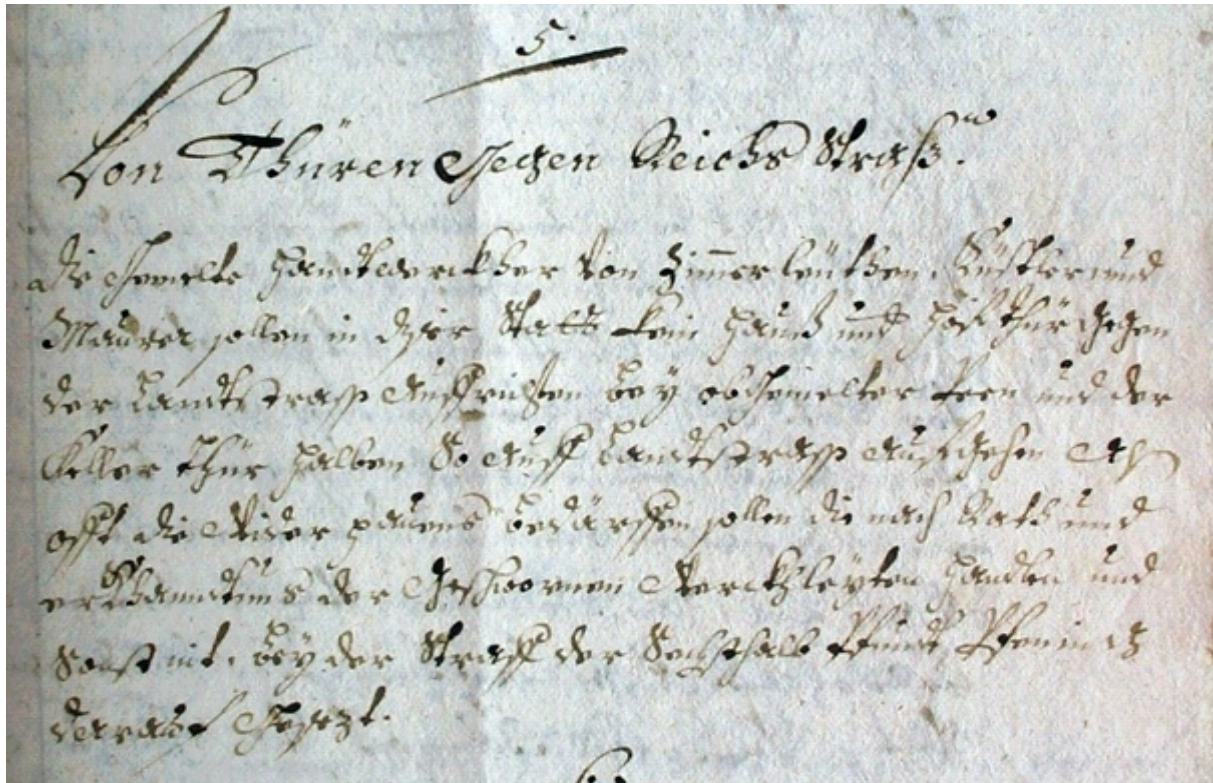 5.
Von Thüren Gegen Reichs Strass.
Die Gemelte Handtwerckher von Zimmerleüthen, Küstler und
Maurer sollen in dser Statt kein Hauß und Hof thür gegen
der Landtstrass Auffrichten bey obgemelter Peen und der
Keller thür halben So auff Landtstrass Aussgehen
offt die Wider pauens bedürffen sollen die nach Rath und
erkhanntnus der Geschwornen Werckhleyten handlen und
Sonst nit. bey der Straff der Sechsthalb Pfundt Pfening
darauf Gesezt.